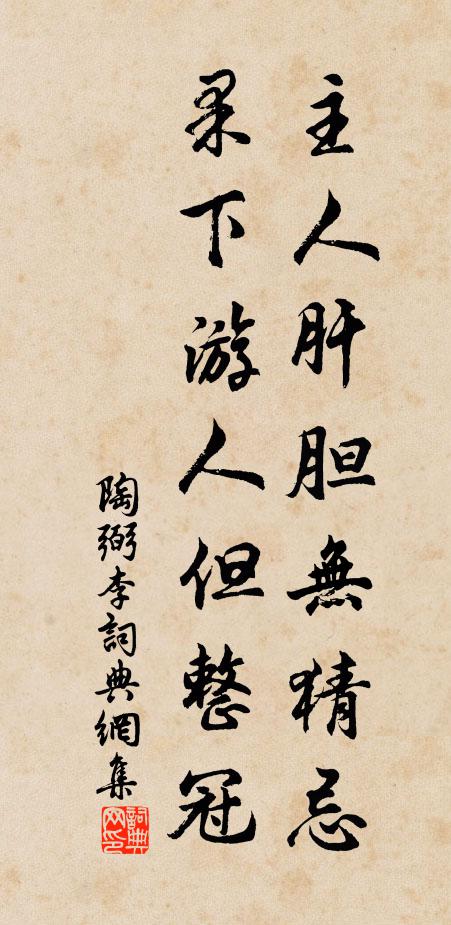 主人肝胆無猜忌
果下游人但整冠
陶弼李詞典網集
詞典
网印